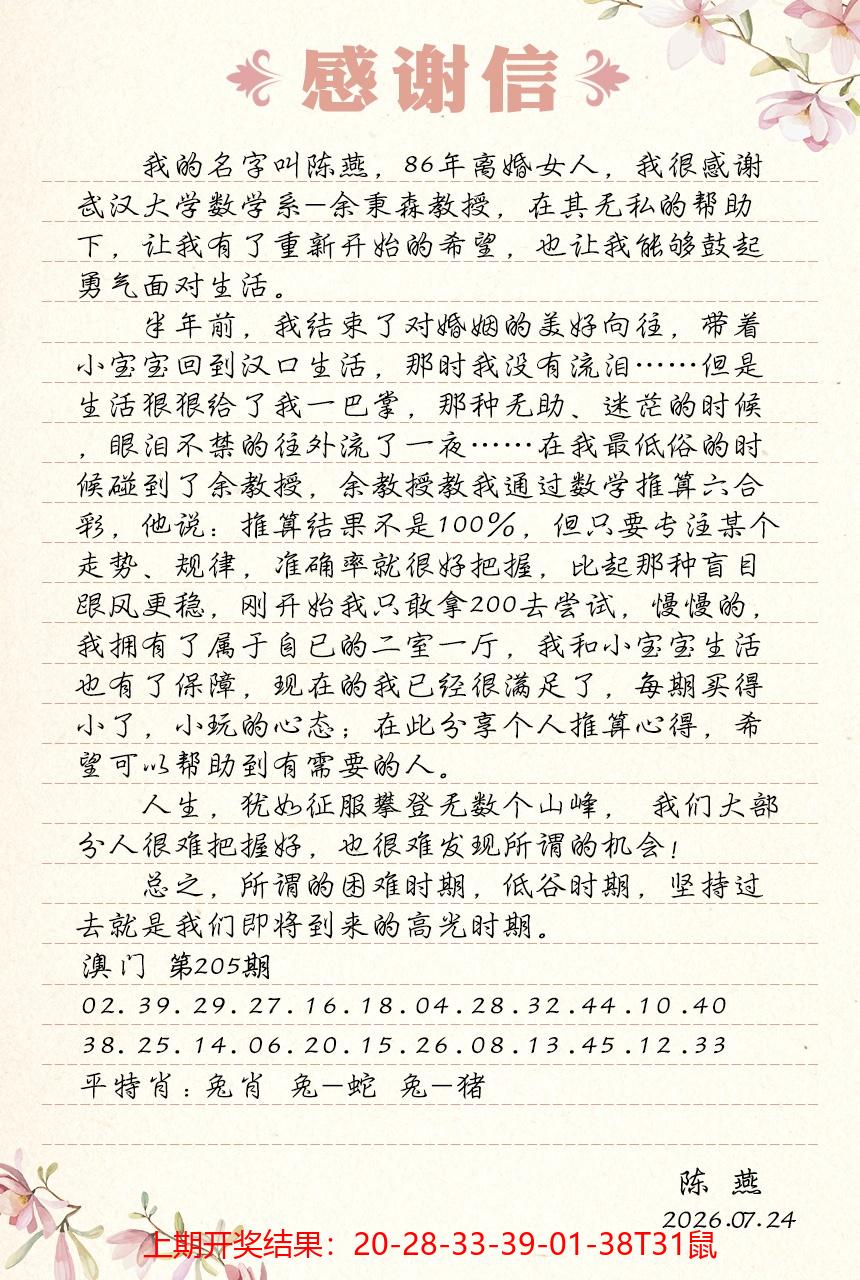 感谢信
我的名字叫陈燕，86年离婚女人，我很感谢
武汉大学数学系—余秉森教授，在其无私的帮助
下，让我有了重新开始的希望，也让我能够鼓起
勇气面对生活。
半年前，我结束了对婚姻的美好向往，带着
小宝宝回到汉口生活，那时我没有流泪……但是
生活狠狠给了我一巴掌，那种无助、迷茫的时候
，眼泪不禁的往外流了一夜……在我最低俗的时
候碰到了余教授，余教授教我通过数学推算六合
彩，他说：推算结果不是100%，但只要专注某个
走势、规律，准确率就很好把握，比起那种盲目
跟风更稳，刚开始我只敢拿200去尝试，慢慢的，
我拥有了属于自已的二室一厅，我和小宝宝生活
也有了保障，现在的我已经很满足了，每期买得
小了，小玩的心态；在此分享个人推算心得，希
望可以帮助到有需要的人。
人生，犹如征服攀登无数个山峰， 我们大部
分人很难把握好，也很难发现所谓的机会！
总之，所谓的困难时期，低谷时期，坚持过
去就是我们即将到来的高光时期。
澳门 第205期
02.39.29.27.16.18.04.28.32.44.10.40
38.25.14.06.20.15.26.08.13.45.12.33
平特肖：兔肖 兔—蛇 兔—猪
陈 燕
2026.07.24
上期开奖结果：20-28-33-39-01-38T31鼠